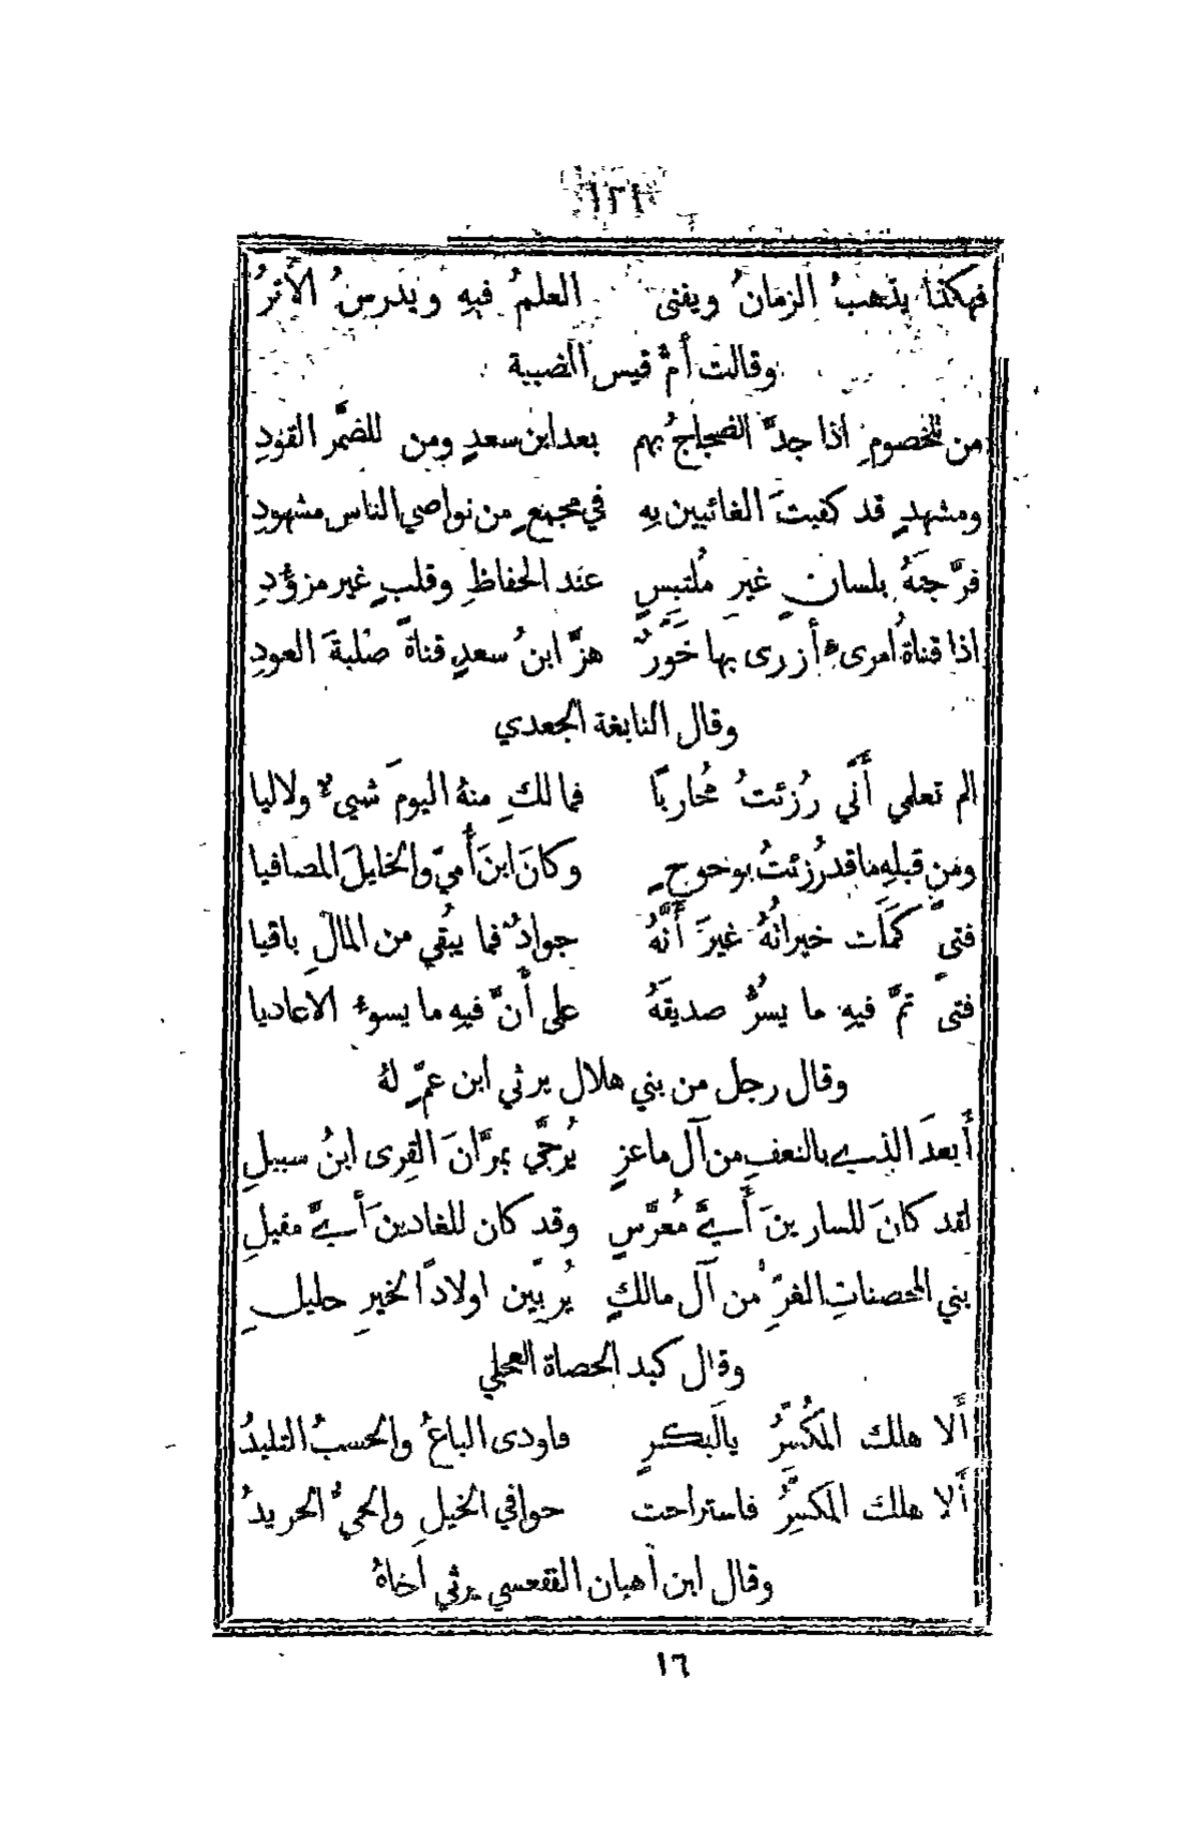 ١٢١
فهكذا يذهبُ الزمانُ ويفنى العلمُ فيهِ ويدرسُ الأَثرُ
وقالت أمُّ قيس الضبية
من للخصومِ اذا جدَّ الضجاجُ بهم بعد ابن سعدٍ ومن للضمَّر القودِ
ومشهدٍ قد كفيتَ الغائبين بهِ في مجمعٍ من نواصي الناس مشهودِ
فرَّجتَهُ بلسانٍ غيرِ مُلتبسٍ عند الحفاظِ وقلبٍ غير مزؤُدِ
اذا قناةُ امرىءٍ أزرى بها خَوَرٌ هزَّ ابنُ سعدٍ قناةً صلبةَ العودِ
وقال النابغة الجعدي
الم تعلمي أَنِّي رُزئتُ مُحاربًا فما لكِ منهُ اليومَ شيىءٌ ولاليا
ومن قبلهِ ما قد رُزئتُ بوحوحٍ وكانَ ابنَ أُميّ والخليلَ المصافيا
فتىً كَمَلَت خيراتُهُ غيرَ أَنَّهُ جوادٌ فما يبُقي من المالِ باقيا
فتىً تمَّ فيهِ ما يسُرُّ صديقَهُ على أنَّ فيهِ ما يسوءُ الاعاديا
وقال رجل من بني هلال يرثي ابن عمٍّ لهُ
أَبعدَ الذي بالنعفِ من آل ماعزٍ يُرجَّى بمرَّانَ القِرى ابنُ سبيلِ
لقد كانَ للسارينَ أَيَّ مُعرَّسٍ وقد كان للغادينَ أَيَّ مقيلِ
بني المحصناتِ الغرِّ من آل مالكٍ يُربِّين اولادًا لخيرِ حليلِ
وقال كبد الحصاة العجلي
أَلا هلك المَكُسِّرُ يالَبكرٍ فاودى الباعُ والحسبُ التليدُ
أَلا هلك المَكسِّرُ فاستراحت حوافي الخيلِ والحيُّ الحريدُ
وقال ابن أهبان الفقعسي يرثي أخاهُ
١٦